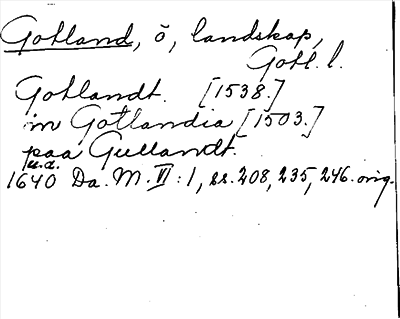 Gotland, ö, landskap,
Gotl. l.
Gotlandt. [1538.]
in Gotlandia [1503.]
paa Gullandt.
u.å.
1640 Da. M. VI : 1, ss. 208, 235, 246. orig.